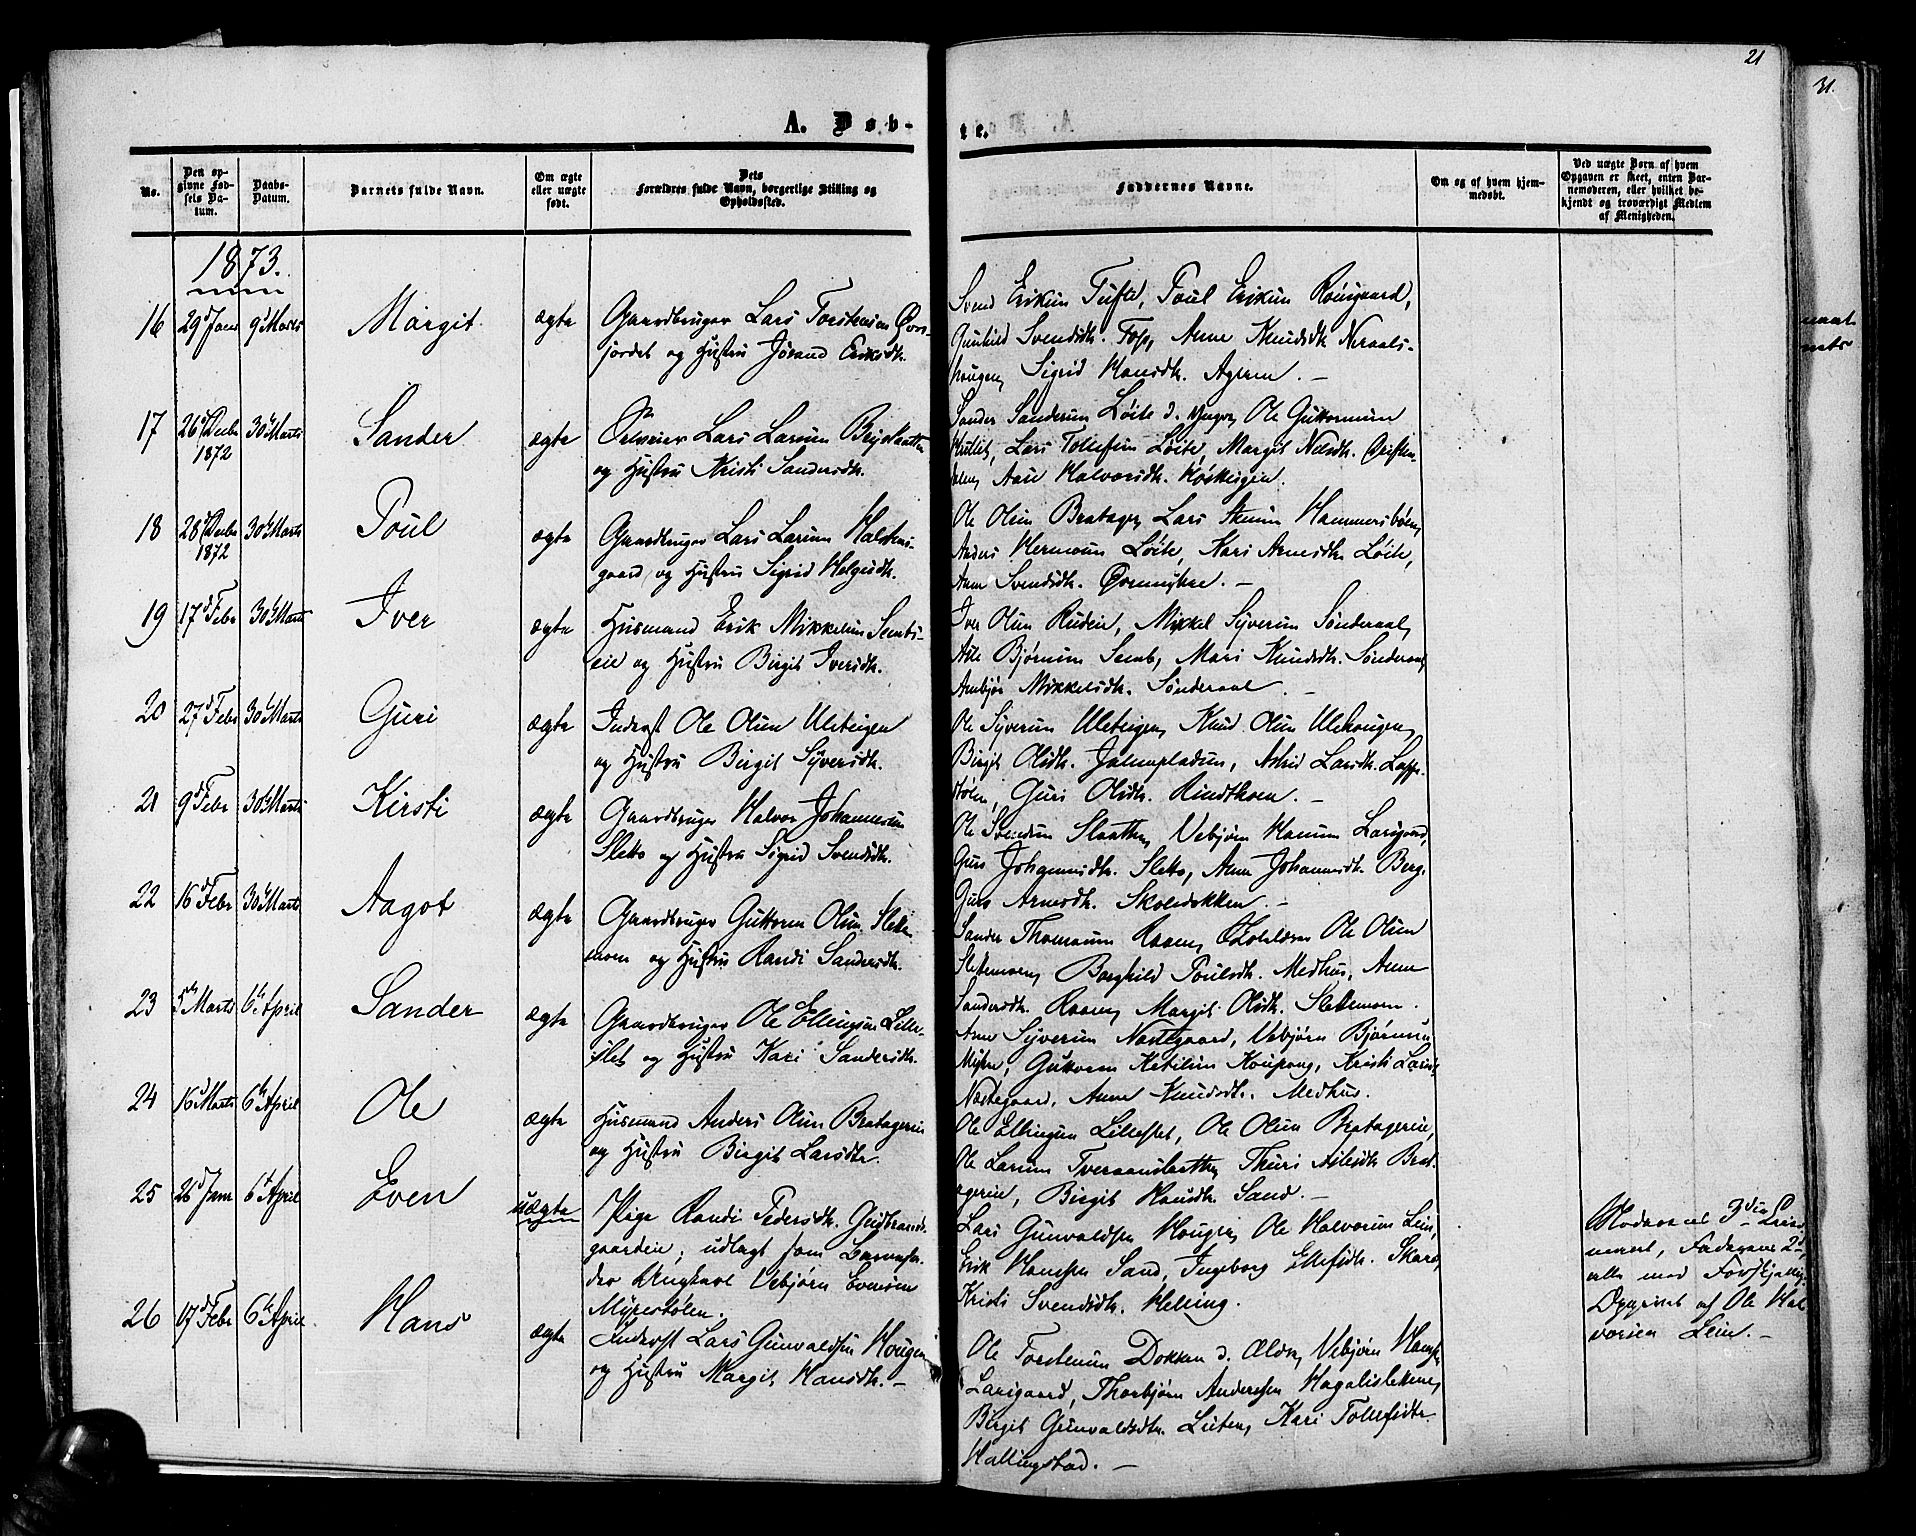 21
31.
A. Døb-
te.
No.
Den op-
givne Fød-
sels Da-
tum.
Daabs-
Datum.
Barnets fulde Navn.
Om ægte
eller uægte
født.
Dets
Forældres fulde Navn, borgerlige Stilling og
Opholdssted.
Faddernes Navne.
Om og af hvem hjem-
medøbt.
Ved uægte Børn af hvem
Opgaven er skeet, enten Bar-
nemoderen, eller hvilket be-
kjendt og troværdigt Medlem
af Menigheden.
1873.
16 29d Janr 9d Marts Margit ægte Gaardbruger Lars Torstensen Øvre-
jordet og Hustru Jørand Eriksdtr.
Svend Eriksen Tufte, Poul Eriksen Rousgaard,
Gunhild Svendsdtr. Foss, Anne Knudsdtr
haugen, Sigrid Hansdtr. Ageren. –
17 26d Decbr 1872 30te Marts Sander ægte Lars Larsen
og Hustru Kristi Sandersdtr.
Sander Sandersen Løite d. yngre, Ole Guttormsen
Lars Tollefsen Løite, Margit Nilsdtr.
Halvorsdtr.
18 28d Decbr 1872 30te Marts Poul ægte Gaardbruger Lars Larsen Halstens-
gaard, og Hustru Sigrid Helgesdtr.
Ole Olsen Bratager, Lars Hammersbøen,
Anders Hermansen Løite, Kari Arnesdtr Løite,
Anne Svendsdtr. Øvremyhre. –
19 17d Febr 30te Marts Iver ægte Husmand Erik Mikkelsen Sembs-
eie og Hustru Birgit Iversdtr.
Iver Olsen Rudeie, Mikkel Syversen Sønderaal,
Asle Bjørnsen Semb, Mari Knudsdtr. Sønderaal,
Ambjør Mikkelsdtr. Sønderaal. –
20 27d Febr 30te Marts Guri ægte Inderst Ole Olsen Ulsteigen
og Hustru Birgit Syversdtr.
Ole Syversen Ulsteigen, Knud Olsen
Birgit Olsdtr. Astrid Larsdtr.
Guri Olsdtr.
21 9d Febr 30te Marts Kirsti ægte Gaardbruger Halvor Johannessen
Sletto og Hustru Sigrid Svendsdtr.
Ole Svendsen Slaatten, Vebjørn Hansen Larsgaard,
Guro Johannesdtr. Sletto, Anne Johannesdtr. Berg,
Guro Arnesdtr. Skoledokken. –
22 16d Febr 30te Marts Aagot ægte Gaardbruger Guttorm Olsen Sletten-
moen og Hustru Randi Sandersdtr.
Sander Thomassen Ole Olsen
Slettemoen, Borghild Poulsdtr. Medhus, Anne
Sandersdtr. Margit Olsdtr. Slettemoen.
23 5te Marts 6te April Sander ægte Gaardbruger Ole Ellingsen Lille-
slet og Hustru Kari Sandersdtr.
Arne Syversen Nestegaard, Vebjørn Bjørnsen
Myhre, Guttorm Ketilsen Kristi Larsdtr.
Nestegaard, Anne Knudsdtr. Medhus.
24 16d Marts 6te April Ole ægte Husmand Anders Olsen Brateger­eie
og Hustru Birgit Larsdtr.
Ole Ellingsen Lilleslet, Ole Olsen Bratagereie,
Ole Larsen Tveraanslaatten, Thuri Aslesdtr. Brat-
agereie, Birgit Hansdtr. Sand. –
25 26d Janr 6te April Even uægte Pige Randi Pedersdtr. Gudbrands-
gaardeie, udlagt som Barnefa-
der Ungkarl Vebjørn Evensen
Myrestølen.
Lars Gunvaldsen Hougen, Ole Halvorsen Lein,
Erik Hansen Sand, Ingeborg Ellefsdtr. Skaro,
Kristi Svendsdtr. Helling.
Moderens 3die Leier-
maal, Faderens 2d,
alle med Forskjellige.
Opgivet af Ole Hal-
vorsen Lein. –
26 17d Febr 6te April Hans ægte Inderst Lars Gunvaldsen Hougen
og Hustru Margit Hansdtr. –
Ole Torstensen Dokken d. Ældre, Vebjørn Hansen
Larsgaard, Thorbjørn Andersen Hagalislettene,
Birgit Gunvaldsdtr. Kari Tollefsdtr.
Hallingstad. –